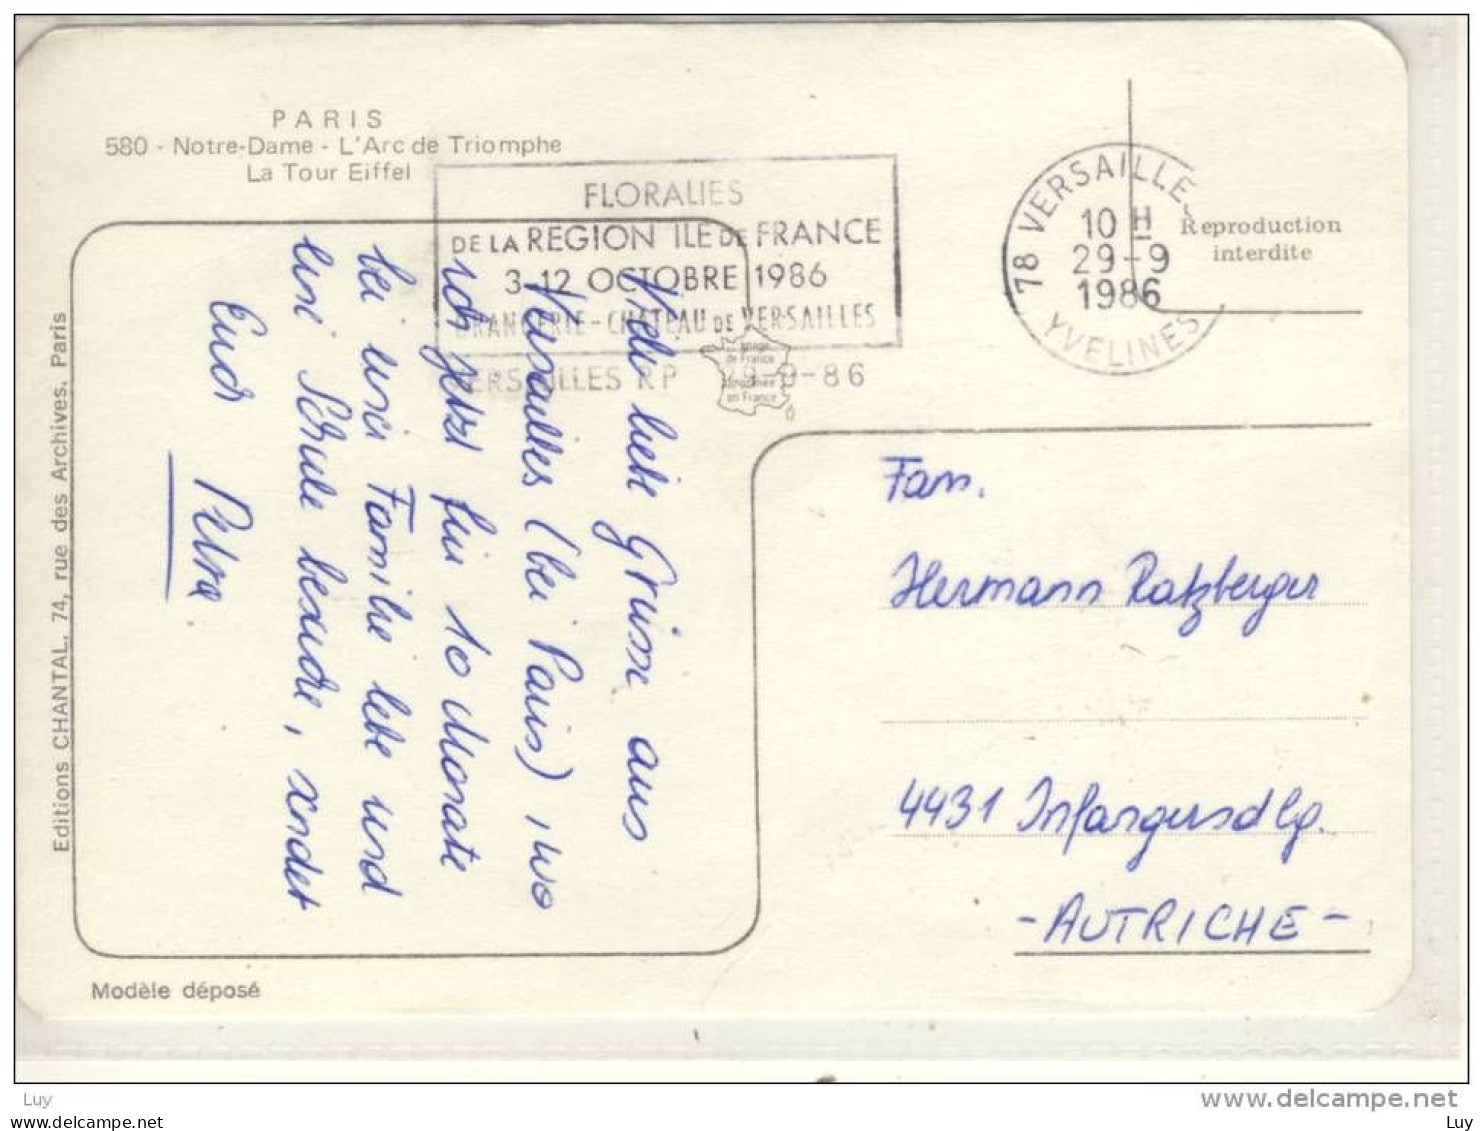 PARIS
580 - Notre-Dame - L'Arc de Triomphe
La Tour Eiffel
FLORALIES
DE LA REGION ILE DE FRANCE
3-12 OCTOBRE 1986
ORANGERIE-CHATEAU DE VERSAILLES
VERSAILLES RP 29-9-86
78 VERSAILLES
10 H
29-9
1986
YVELINES
Reproduction
interdite
Image
de France
imprimée
en France
Viele liebe Grüsse aus
Versailles (bei Paris), wo
ich jetzt für 10 Monate
bei einer Familie lebe und
eine Schule besuche, sendet
Euch
Petra
Fam.
Hermann Ratzberger
4431 Haidershofen
- AUTRICHE -
Editions CHANTAL, 74, rue des Archives, Paris
Modèle déposé
Luy
www.delcampe.net
Luy
www.delcampe.net
Luy